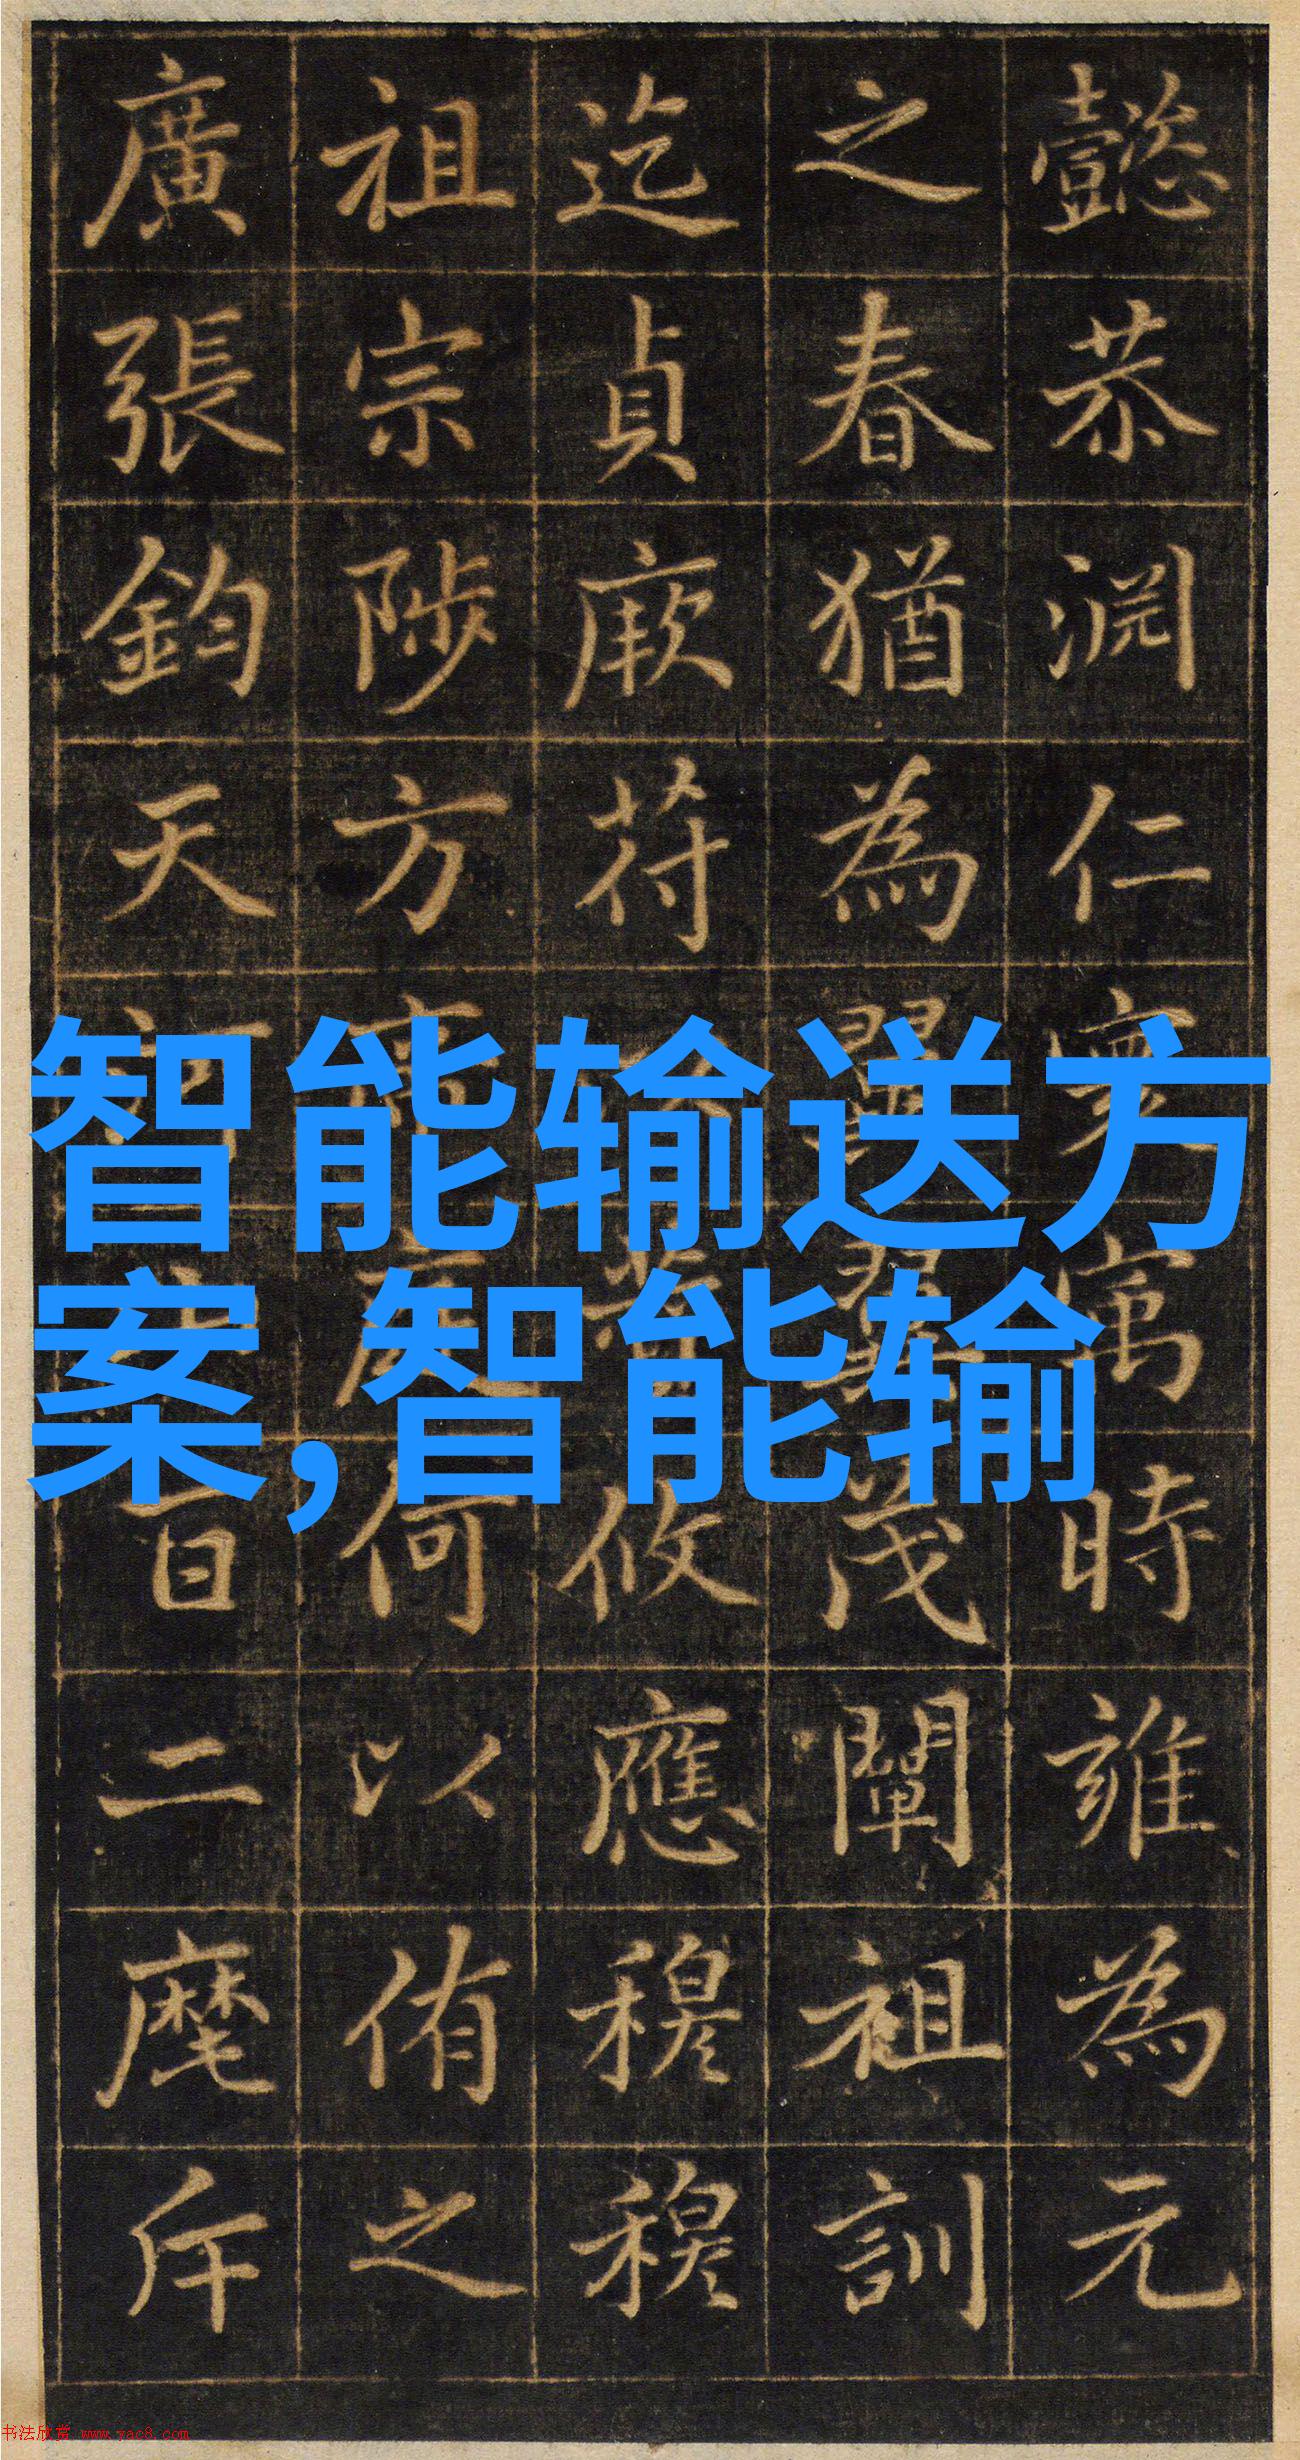 懿恭淵仁時雍為元
之春猶為茂闡祖訓
迄貞厥符攸應穆穆
祖宗陟方何以侑之
廣張鈞天二麾斥
智能输送方
案,智能输
书法欣赏 www.yac8.com